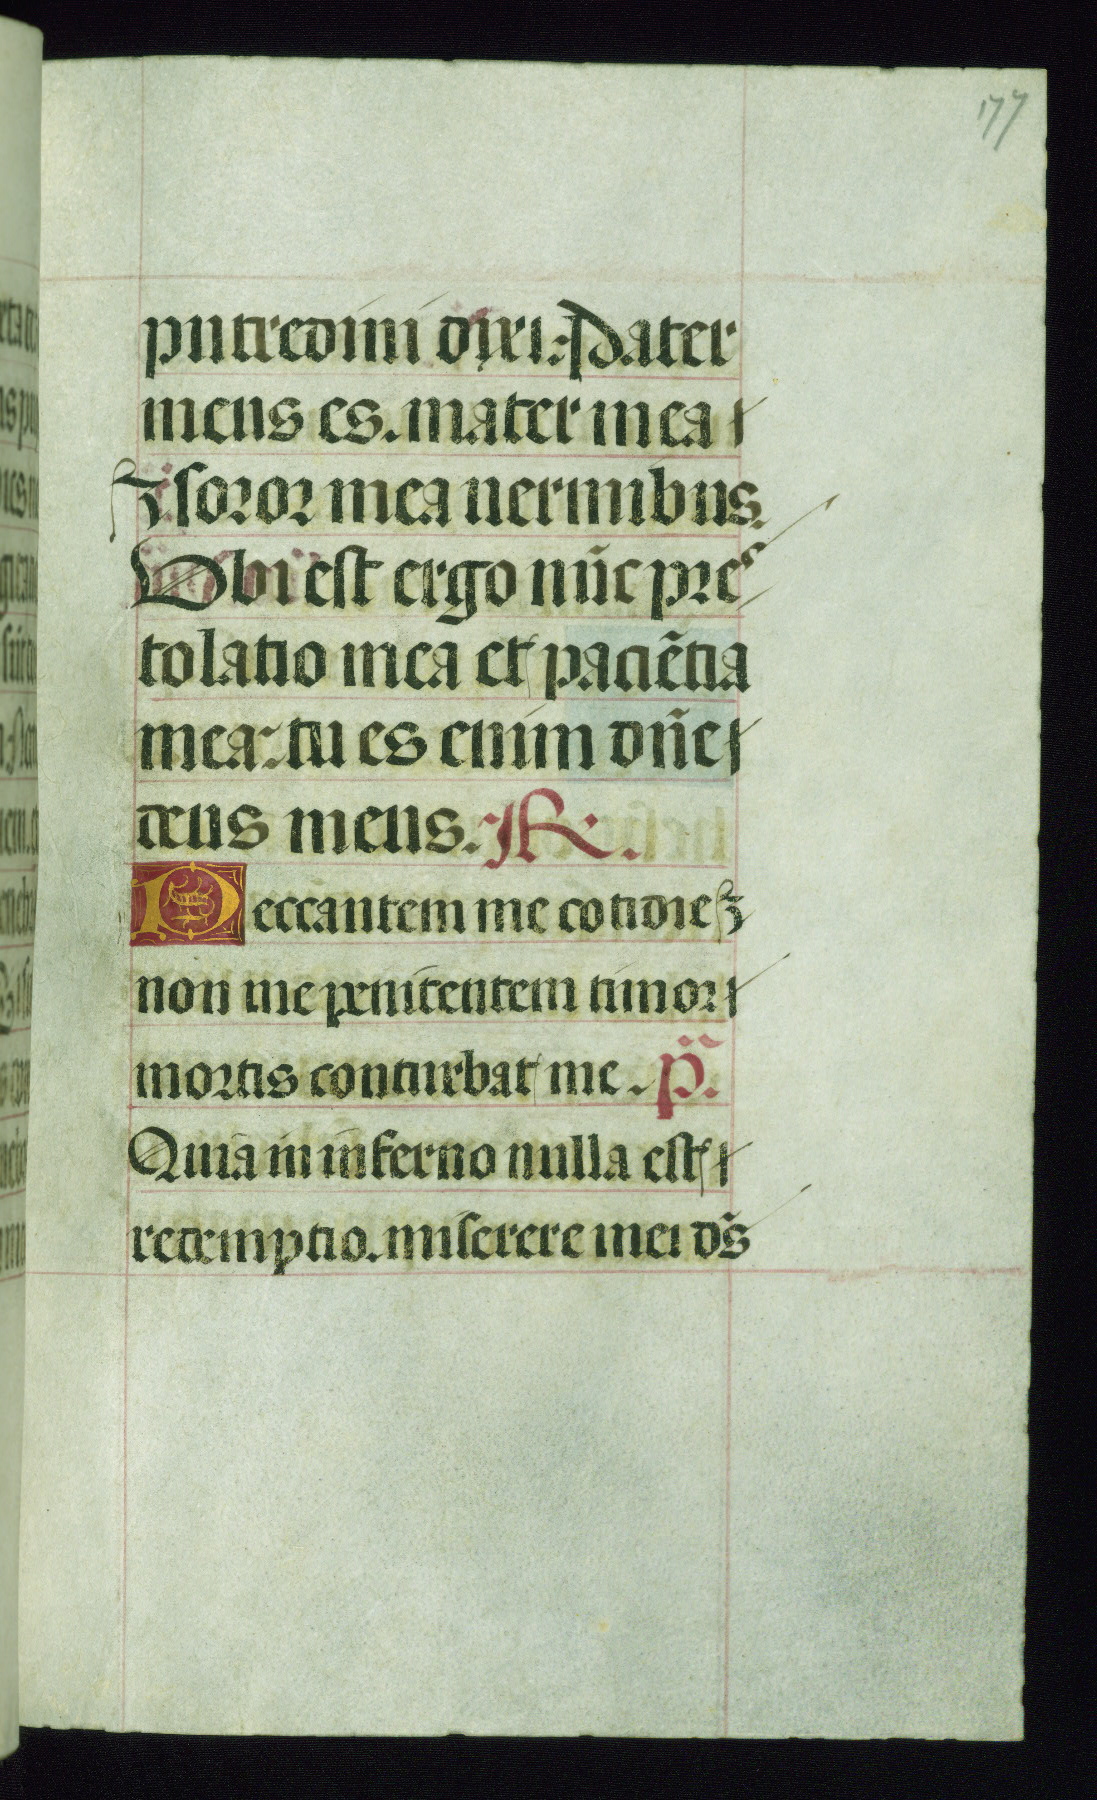 177
putredini dixi: Pater
meus es. mater mea
⁊ soror mea uermibus.
Ubi est ergo nūc pres
tolatio mea et paciẽtia
mea: tu es enim dñe
deus meus. R.
Peccantem me cotidie ⁊
non me penitentem timor
mortis conturbat me. p̃.
Quia in inferno nulla est
redemptio. miserere mei dš